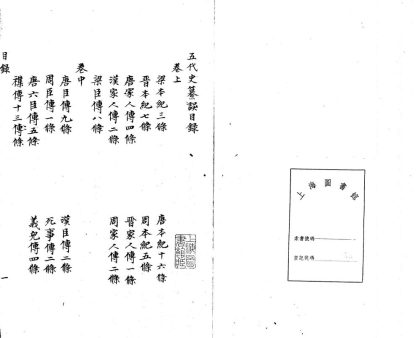 五代史纂誤目録
卷上
梁本紀三條
唐本紀十六條
晉本紀七條
周本紀五條
唐家人傳四條
晉家人傳一條
漢家人傳二條
周家人傳二條
梁臣傳八條
卷中
唐臣傳九條
漢臣傳三條
周臣傳一條
死事傳二條
唐六臣傳五條
義兒傳四條
雜傳十三條
目録
一
上海圖書館
索書號碼
登記號碼